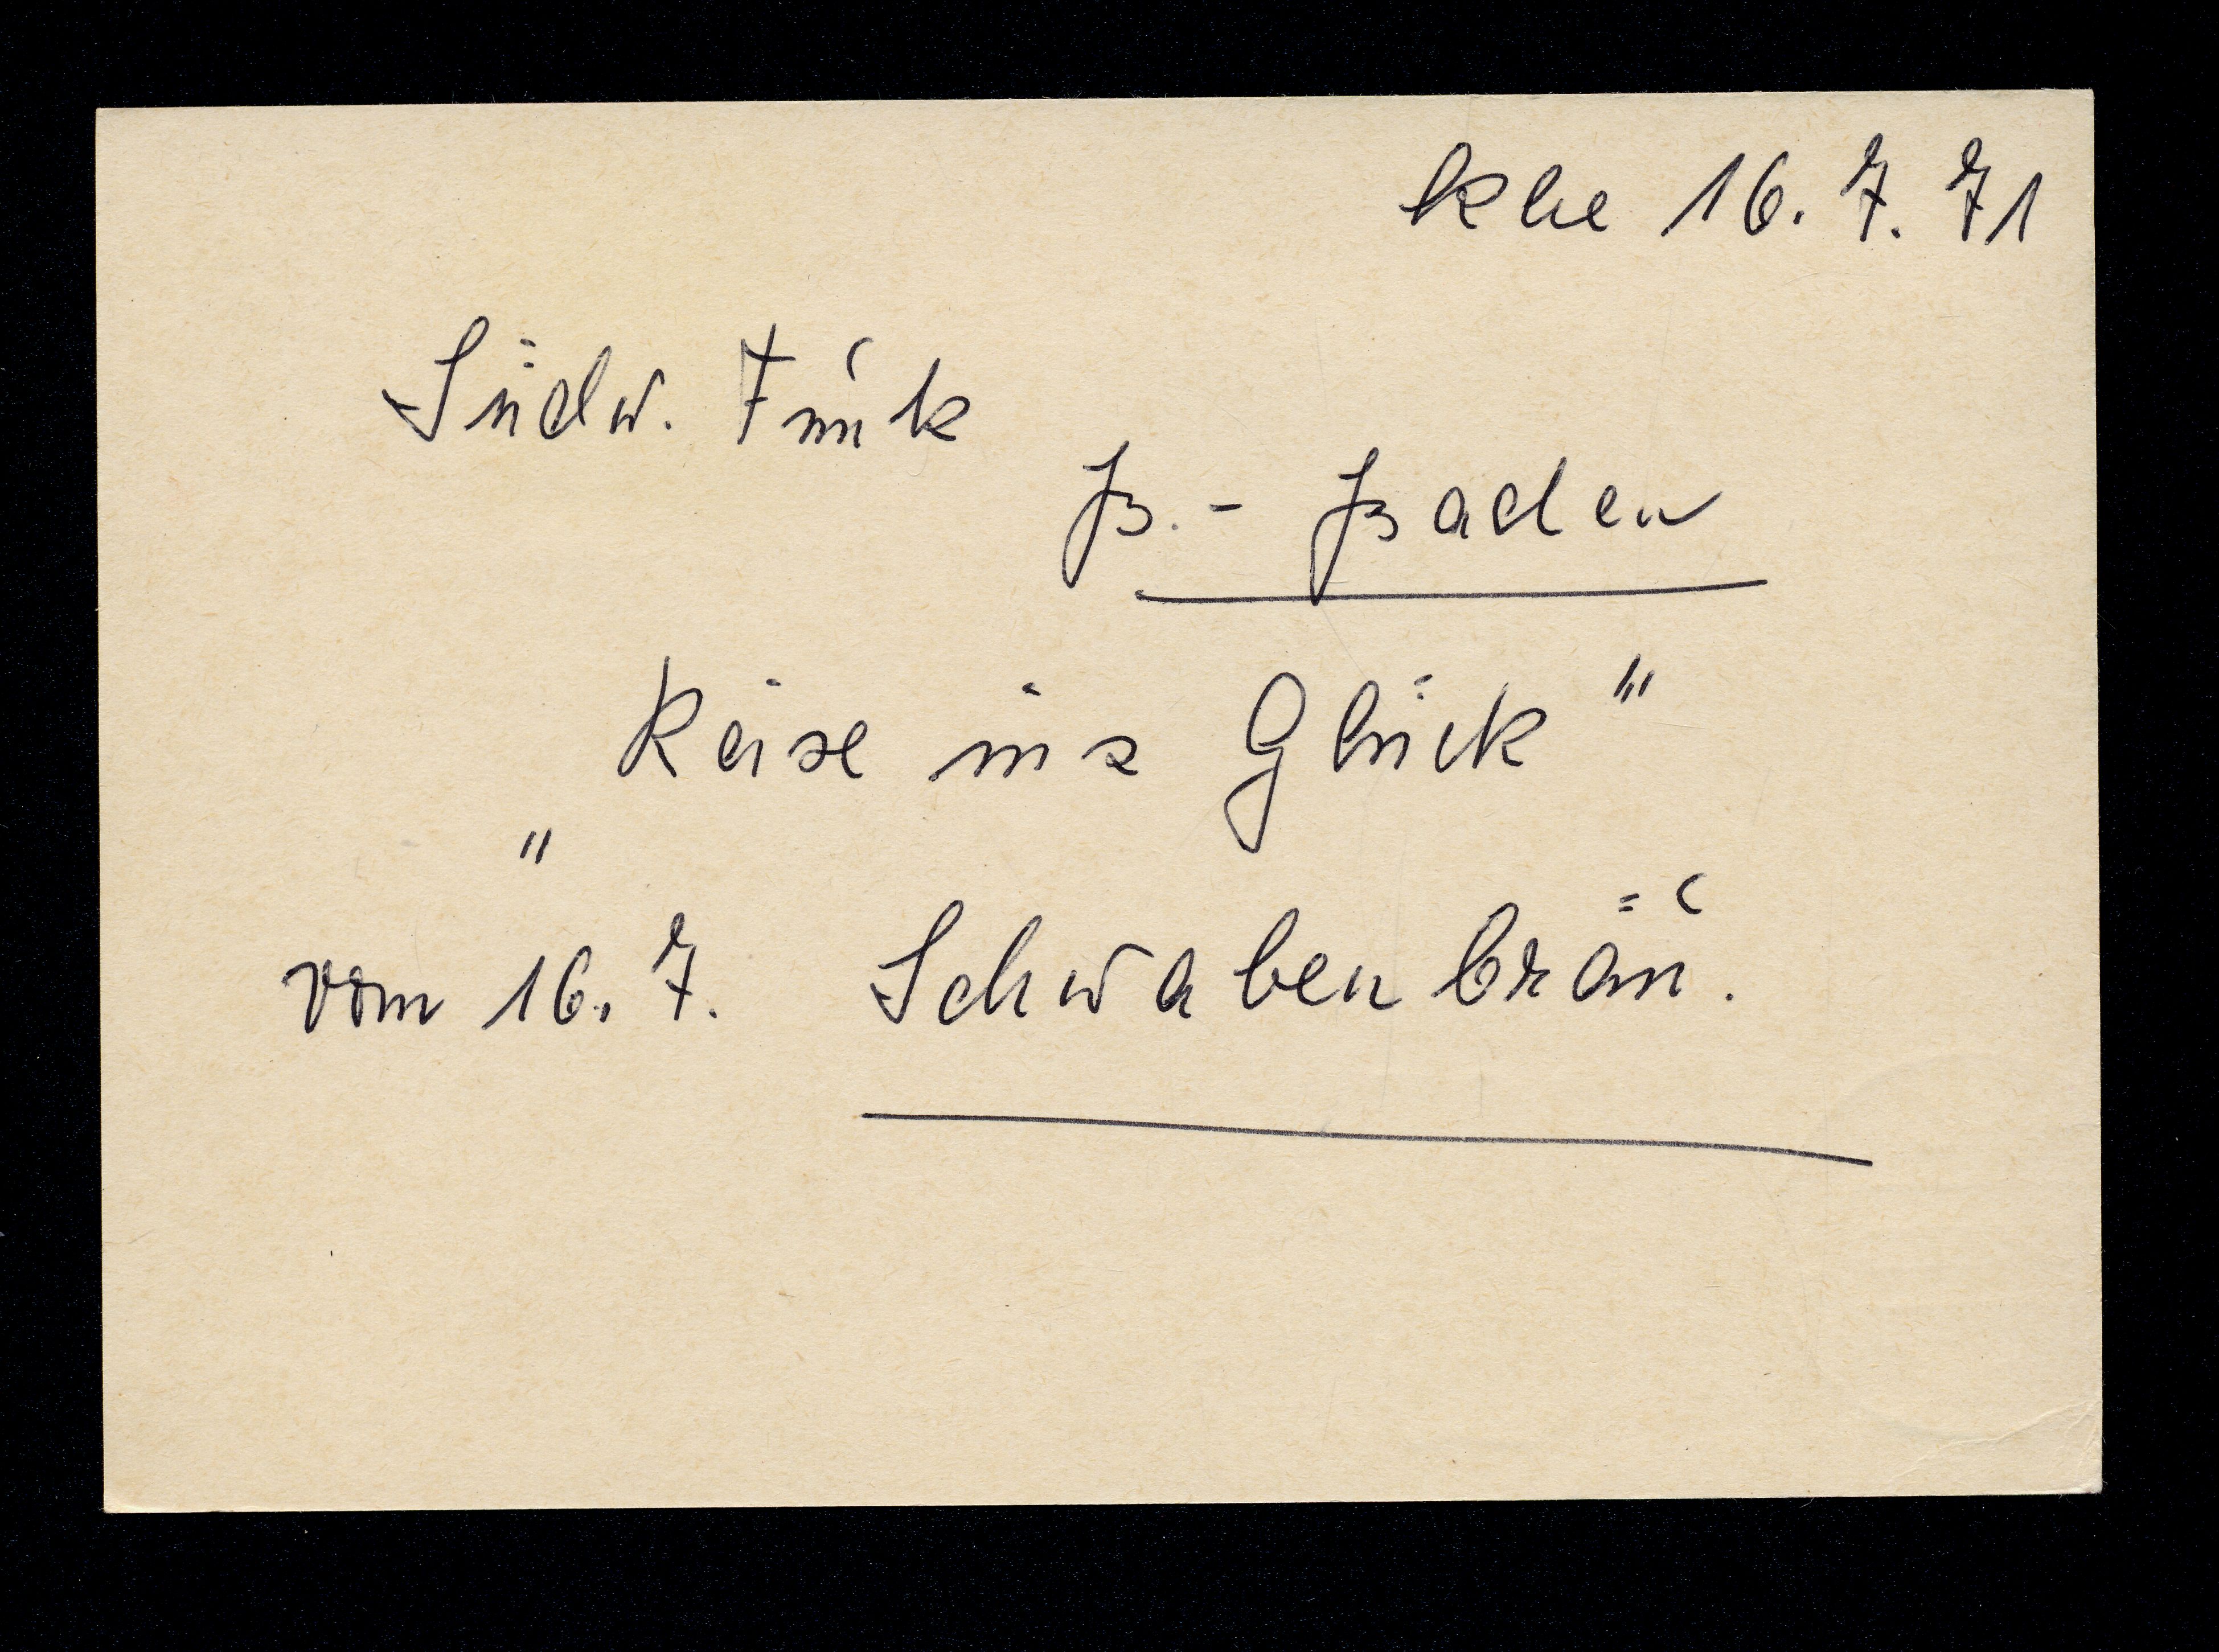 Khe 16.7.71
Südw. Funk
B.-Baden
"Reise ins Glück"
vom 16.7. Schwabenbräu.